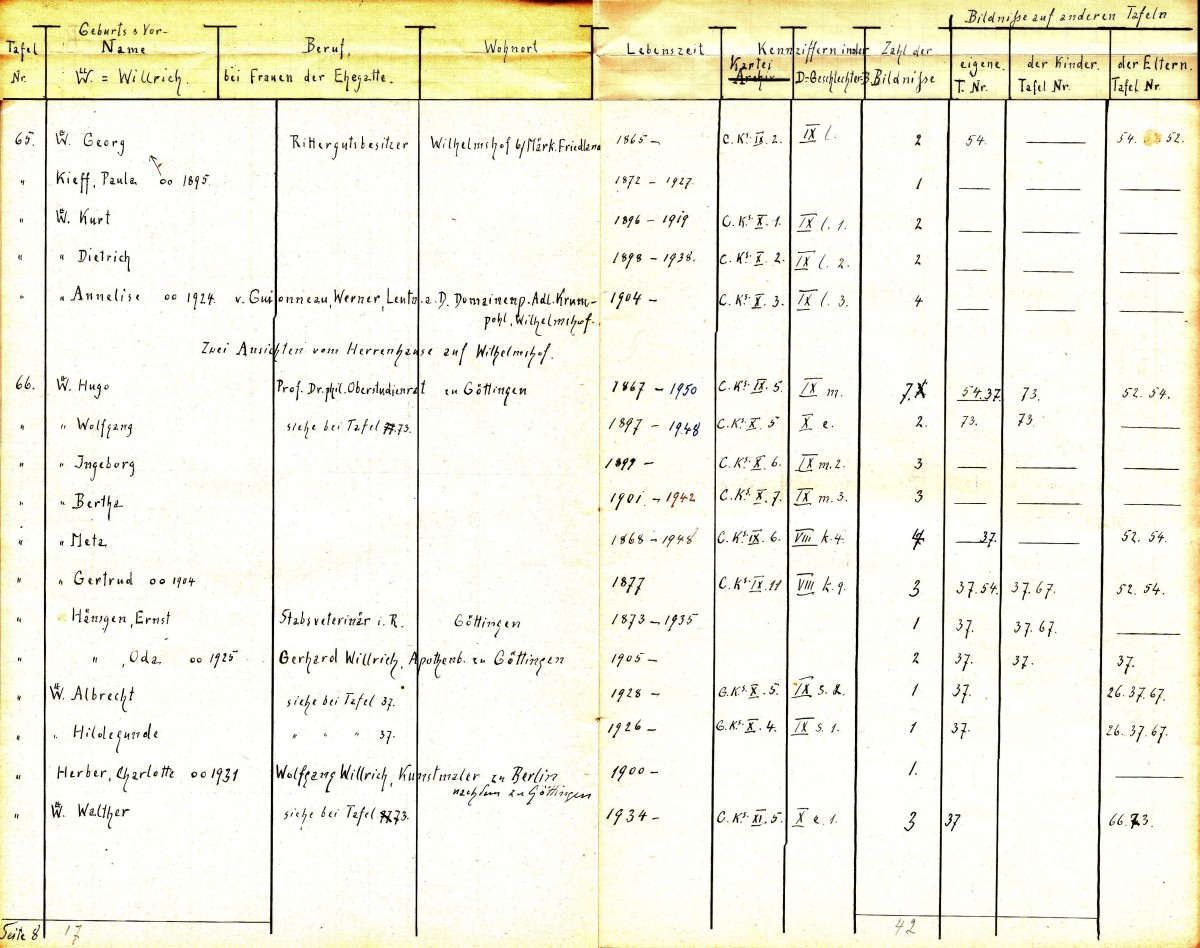 Tafel Nr. | Geburts & Vor- Name W. = Willrich. | Beruf, bei Frauen der Ehegatte. | Wohnort | Lebenszeit | Kennziffern in der Kartei Archiv | D-Geschlechter-B. | Zahl der Bildniße | Bildniße auf anderen Tafeln eigene. T. Nr. | der Kinder. Tafel Nr. | der Eltern. Tafel Nr.
65. W. Georg Rittergutsbesitzer Wilhelmshof b/Märk. Friedland 1865 – C. Ks. IX. 2. IX l. 2 54. 54. 52.
" Kieff, Paula oo 1895. 1872 – 1927. 1 — — —
" W. Kurt 1896 – 1919 C. Ks. X. 1. IX l. 1. 2 — — —
" " Dietrich 1898 – 1938. C. Ks. X. 2. IX l. 2. 2 — — —
" " Annelise oo 1924. v. Guionneau, Werner, Leutn. a. D. Domainenp. Adl. Krum- 1904 – C. Ks. X. 3. IX l. 3. 4 — — —
pohl, Wilhelmshof.
Zwei Ansichten vom Herrenhause auf Wilhelmshof.
66. W. Hugo Prof. Dr. phil. Oberstudienrat zu Göttingen 1867 – 1950 C. Ks. IX. 5. IX m. 7. 54. 37. 73. 52. 54.
" " Wolfgang siehe bei Tafel 73. 1897 – 1948 C. Ks. X. 5 X e. 2. 73. 73. —
" " Ingeborg 1899 – C. Ks. X. 6. IX m. 2. 3 — — —
" " Bertha 1901 – 1942 C. Ks. X. 7. IX m. 3. 3 — — —
" " Meta 1868 – 1948 C. Ks. IX. 6. VIII k. 4. 4 37. — 52. 54.
" " Gertrud oo 1904 1877 C. Ks. IX. 11 VIII k. 9. 3 37. 54. 37. 67. 52. 54.
" Hänsgen, Ernst Stabsveterinär i. R. Göttingen 1873 – 1935 1 37. 37. 67. —
" " , Oda oo 1925 Gerhard Willrich, Apothenb. zu Göttingen 1905 – 2 37. 37. 37.
" W. Albrecht siehe bei Tafel 37. 1928 – G. Ks. X. 5. IX s. 2. 1 37. 26. 37. 67.
" " Hildegunde " " " 37. 1926 – G. Ks. X. 4. IX s. 1. 1 37. 26. 37. 67.
" Herber, Charlotte oo 1931 Wolfgang Willrich, Kunstmaler zu Berlin 1900 – 1. —
nachdem zu Göttingen
" W. Walther siehe bei Tafel 73. 1934 – C. Ks. XI. 5. X e. 1. 3 37 66. 73.
Seite 8 17 42